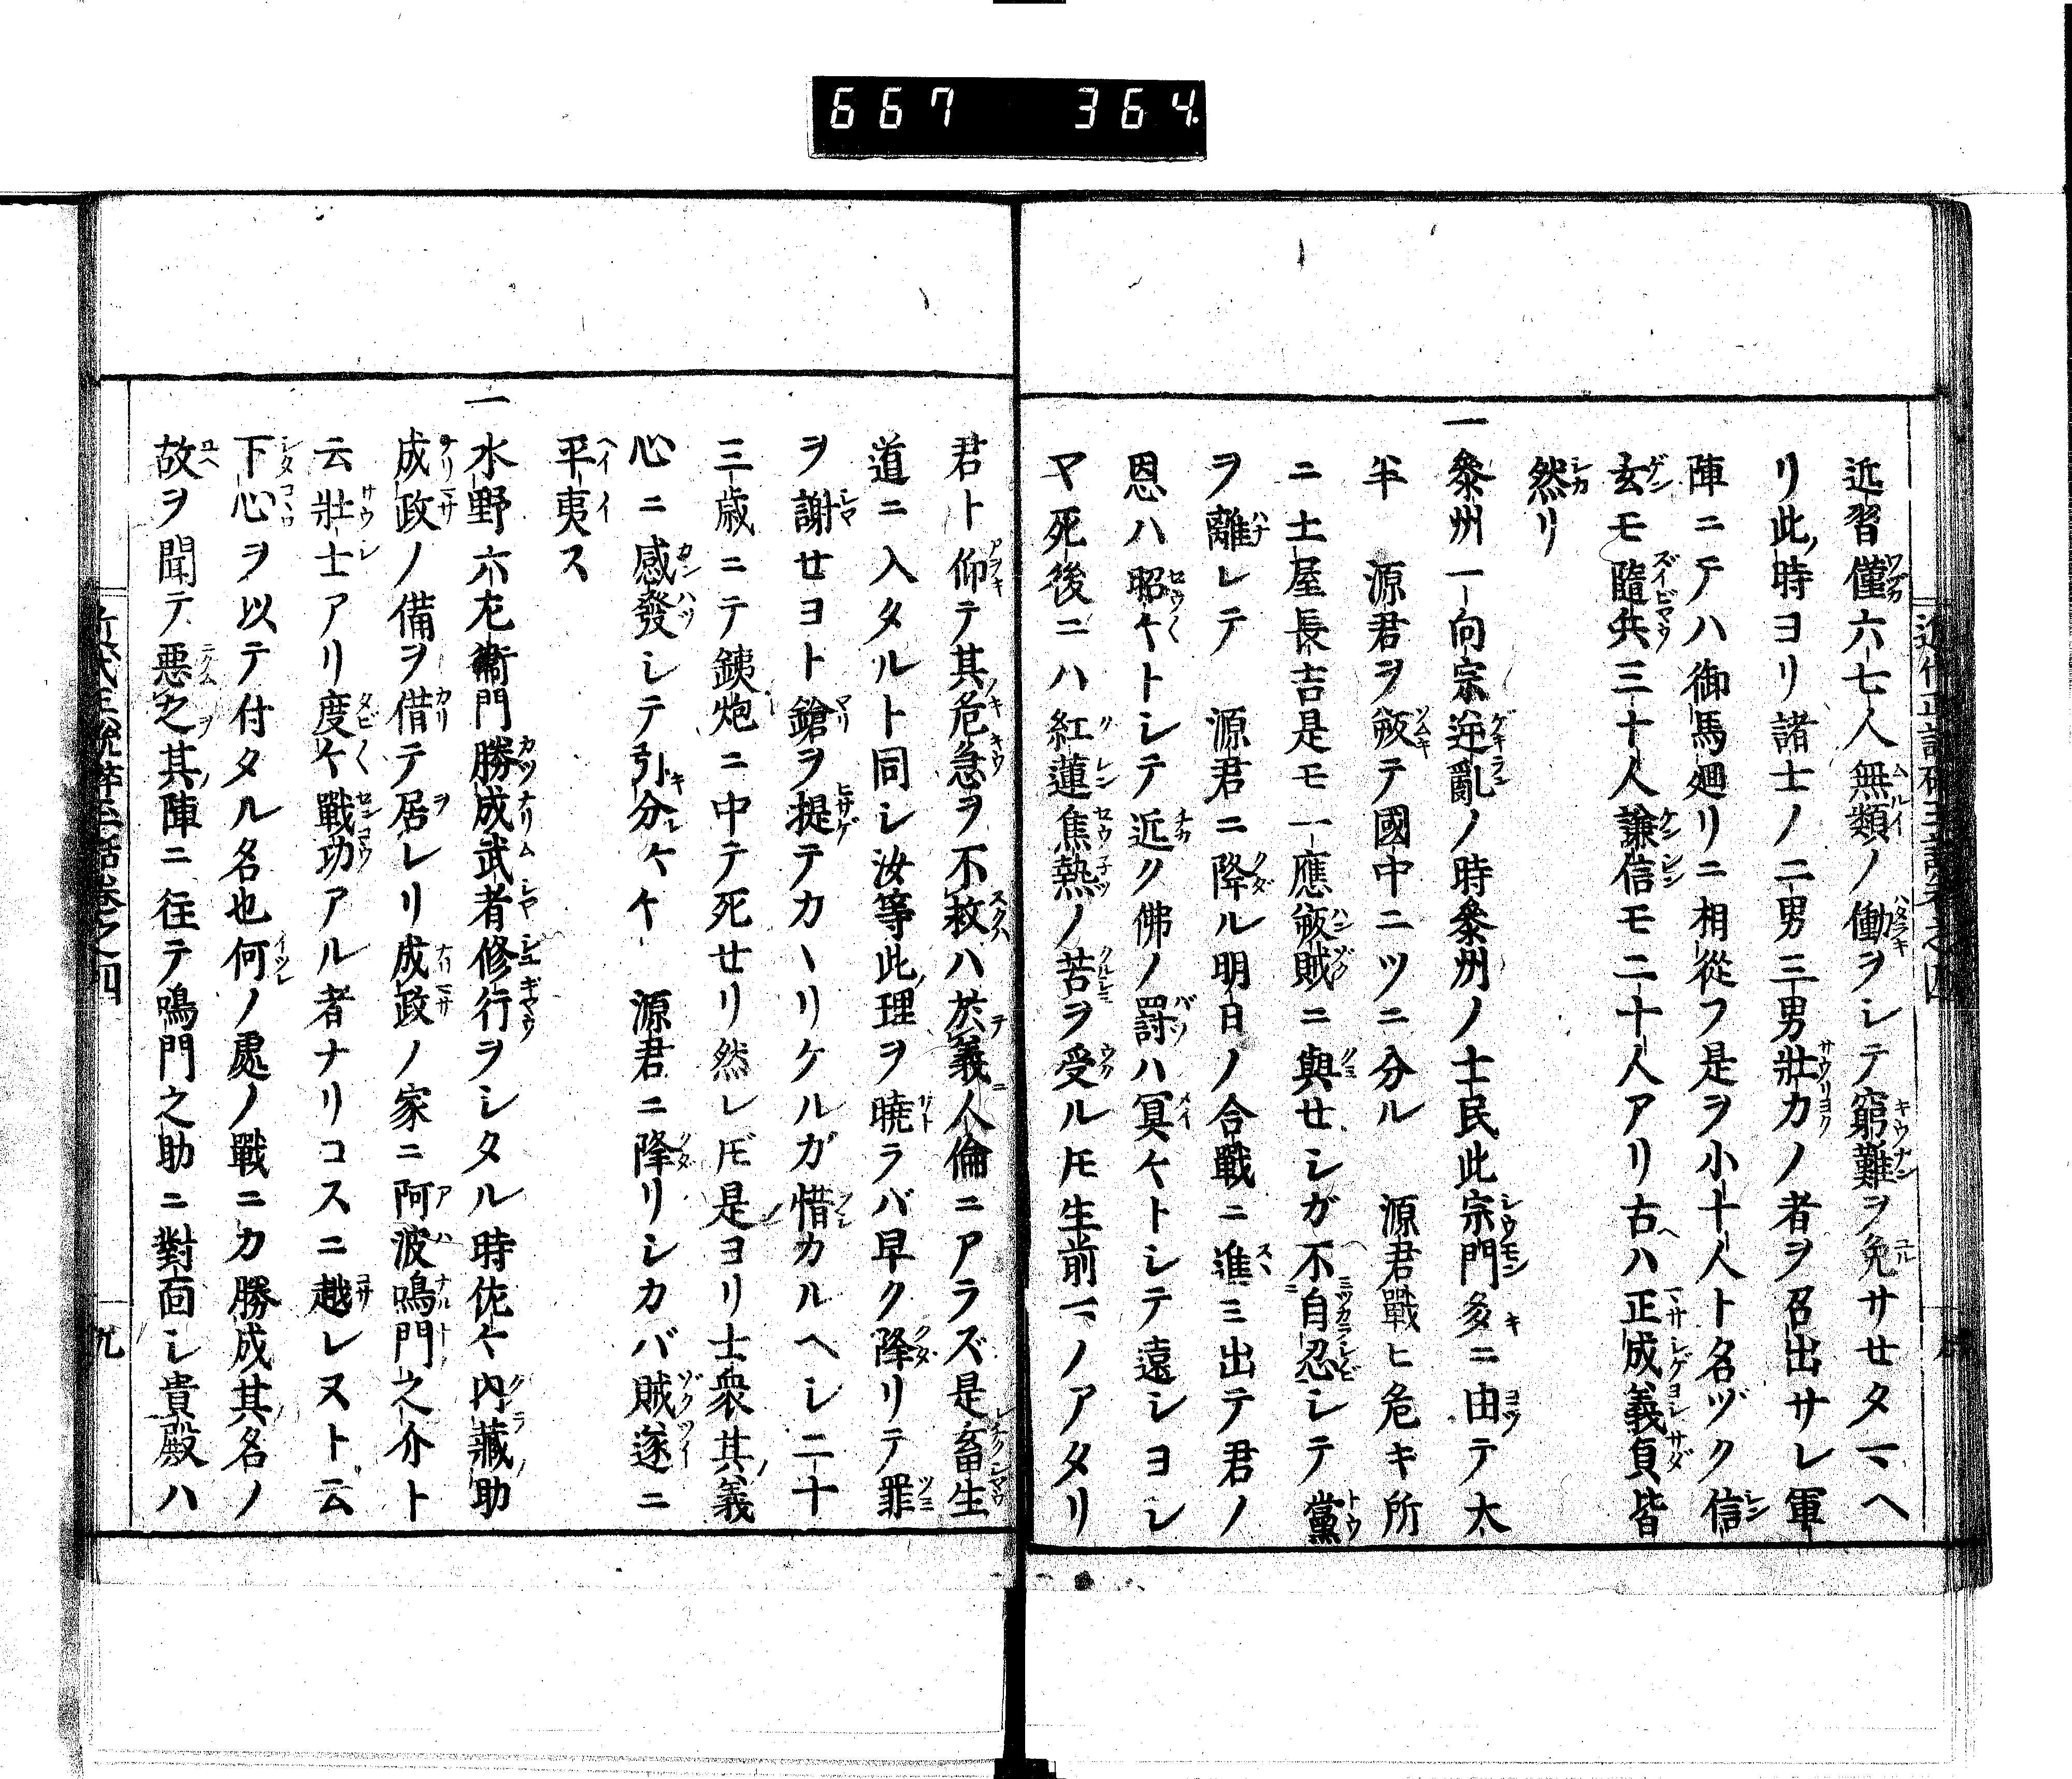 667 364.
近習僅六七人無類ノ働ヲシテ窮難ヲ免サセタマヘ
リ此時ヨリ諸士ノ二男三男壯力ノ者ヲ召出サレ軍
陣ニテハ御馬廻リニ相從フ是ヲ小十人ト名ヅク信
玄モ隨兵三十人謙信モ二十人アリ古ハ正成義貞皆
然リ
一參州一向宗逆亂ノ時參州ノ士民此宗門多ニ由テ太
半 源君ヲ叛テ國中二ツニ分ル 源君戰ヒ危キ所
ニ土屋長吉是モ一應叛賊ニ與セシガ不自忍シテ黨
ヲ離レテ 源君ニ降ル明日ノ合戰ニ進ミ出テ君ノ
恩ハ昭々トシテ近ク佛ノ罸ハ冥々トシテ遠シヨシ
マ死後ニハ紅蓮焦熱ノ苦ヲ受ルトモ生前マノアタリ
君ト仰テ其危急ヲ不救ハ於義人倫ニアラズ是畜生
道ニ入タルト同シ汝等此理ヲ曉ラバ早ク降リテ罪
ヲ謝セヨト鎗ヲ提テカヽリケルガ惜カルヘシ二十
三歳ニテ銕炮ニ中テ死セリ然レトモ是ヨリ士衆其義
心ニ感發シテ引分々々 源君ニ降リシカバ賊遂ニ
平夷ス
一水野六左衞門勝成武者修行ヲシタル時佐々内藏助
成政ノ備ヲ借テ居レリ成政ノ家ニ阿波鳴門之介ト
云壯士アリ度々戰功アル者ナリコスニ越レヌト云
下心ヲ以テ付タル名也何ノ處ノ戰ニカ勝成其名ノ
故ヲ聞テ惡之其陣ニ往テ鳴門之助ニ對面シ貴殿ハ
九